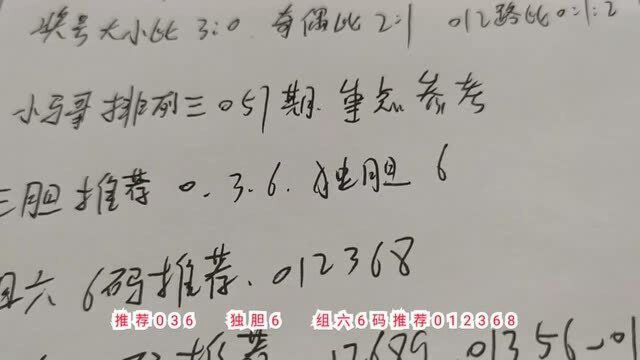 奖号大小比 3:0 奇偶比 2:1 012路比 0:1:2
小马哥排列三 057期. 重点参考
三胆推荐 0.3.6. 独胆 6
组六 6码推荐. 012368
推荐036 独胆6 组六6码推荐012368
推荐 12689 01356